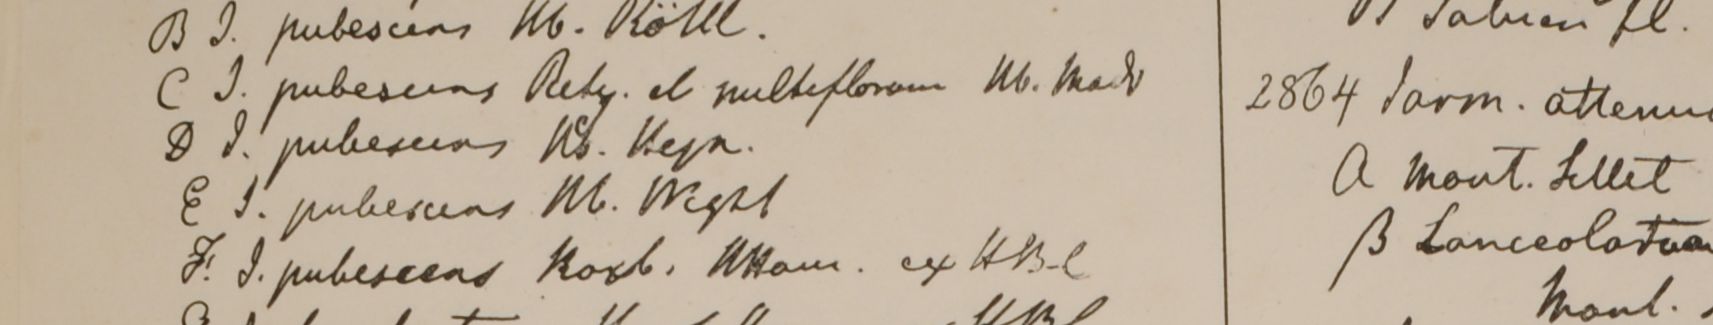 B J. pubescens Hb. Röttl.
C J. pubescens Retz. et multiflorum Hb. Madr
D J. pubescens Hb. Heyn.
E J. pubescens Hb. Wight
F. J. pubescens Roxb. HHam. ex HBC
HBC
fl.
2864 Jasm. attenu
A Mont. Sillet
B Lanceolatum
Mont.